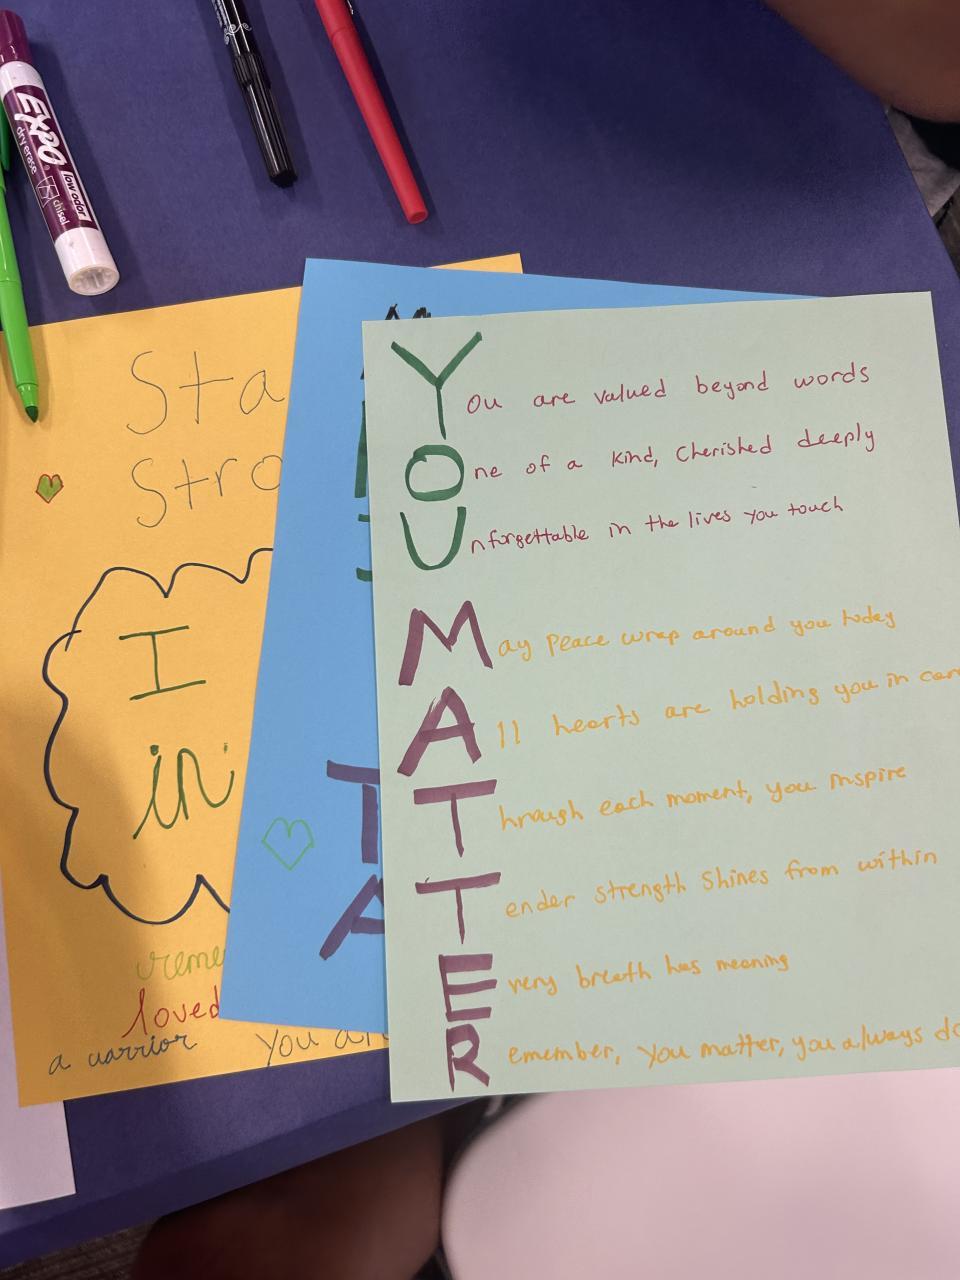 EXPO
dry erase
low odor
chisel
Sta
Stro
I
in
reme
loved
a warrior
you ar
TA
You are valued beyond words
One of a kind, Cherished deeply
Unforgettable in the lives you touch
May Peace wrap around you today
All hearts are holding you in car
Through each moment, you inspire
Tender strength Shines from within
Every breath has meaning
Remember, you matter, you always do